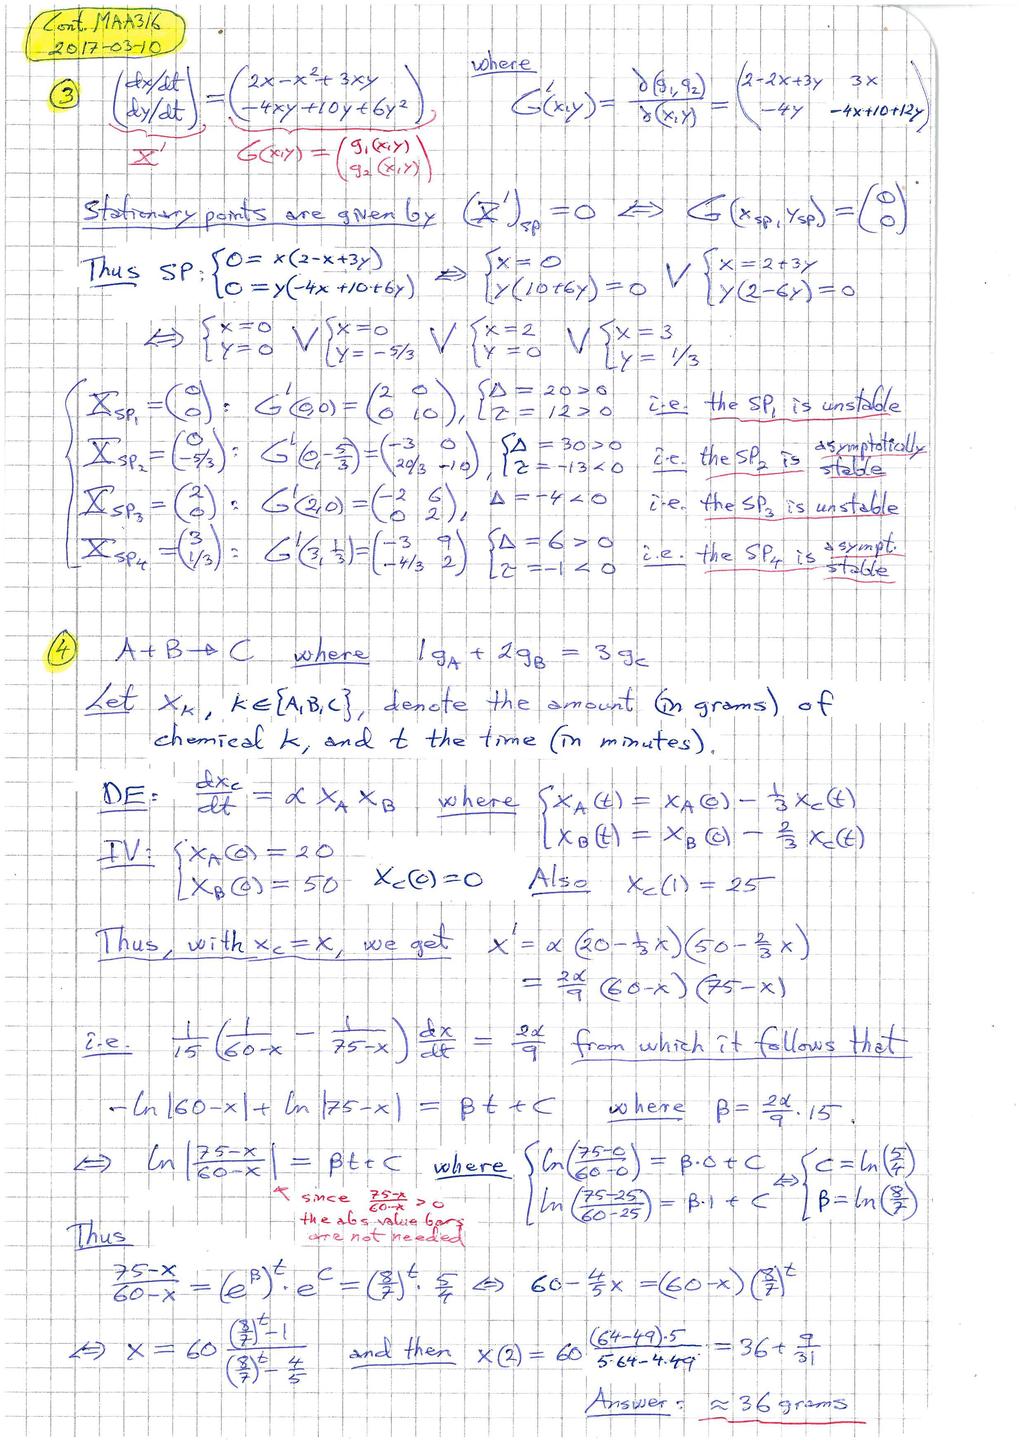 Cont. MAA316
2017-03-10
③ (dx/dt dy/dt) = (2x-x²+3xy -4xy+10y+6y²) where G'(x,y) = ∂(g₁,g₂)/∂(x,y) = (2-2x+3y 3x -4y -4x+10+12y)
X' G(x,y) = (g₁(x,y) g₂(x,y))
Stationary points are given by (X')sp = 0 ⇔ G(xsp, ysp) = (0 0)
Thus SP: {0 = x(2-x+3y) 0 = y(-4x+10+6y) ⇔ {x = 0 y(10+6y) = 0 V {x = 2+3y y(2-6y) = 0
⇔ {x=0 y=0 V {x=0 y=-5/3 V {x=2 y=0 V {x=3 y=1/3
Xsp₁ = (0 0): G'(0,0) = (2 0 0 10), {Δ = 20>0 τ = 12>0 i.e. the SP₁ is unstable
Xsp₂ = (0 -5/3): G'(0,-5/3) = (-3 0 20/3 -10), {Δ = 30>0 τ = -13<0 i.e. the SP₂ is asymptotically stable
Xsp₃ = (2 0): G'(2,0) = (-2 6 0 2), Δ = -4<0 i.e. the SP₃ is unstable
Xsp₄ = (3 1/3): G'(3,1/3) = (-3 9 -4/3 2) {Δ = 6>0 τ = -1<0 i.e. the SP₄ is asympt. stable
④ A+B→C where 1g_A + 2g_B = 3g_C
Let x_k, k∈{A,B,C}, denote the amount (in grams) of
chemical k, and t the time (in minutes).
DE: dx_C/dt = α x_A x_B where {x_A(t) = x_A(0) - 1/3 x_C(t) x_B(t) = x_B(0) - 2/3 x_C(t)
IV: {x_A(0) = 20 x_B(0) = 50 x_C(0)=0 Also x_C(1) = 25
Thus, with x_C = x, we get x' = α(20-1/3x)(50-2/3x)
= 2α/9 (60-x)(75-x)
i.e. 1/15 (1/60-x - 1/75-x) dx/dt = 2α/9 from which it follows that
-ln|60-x| + ln|75-x| = βt + C where β = 2α/9 · 15.
⇔ ln|75-x/60-x| = βt+C where {ln(75-0/60-0) = β·0+C ln(75-25/60-25) = β·1+C ⇔ {C = ln(5/4) β = ln(8/7)
since 75-x/60-x > 0
the abs value bars
are not needed
Thus
75-x/60-x = (e^β)^t · e^C = (8/7)^t · 5/4 ⇔ 60-4/5x = (60-x)(8/7)^t
⇔ x = 60 (8/7)^t-1/(8/7)^t-4/5 and then x(2) = 60 · (64-49)·5/5·64-4·49 = 36+9/31
Answer: ≈36 grams